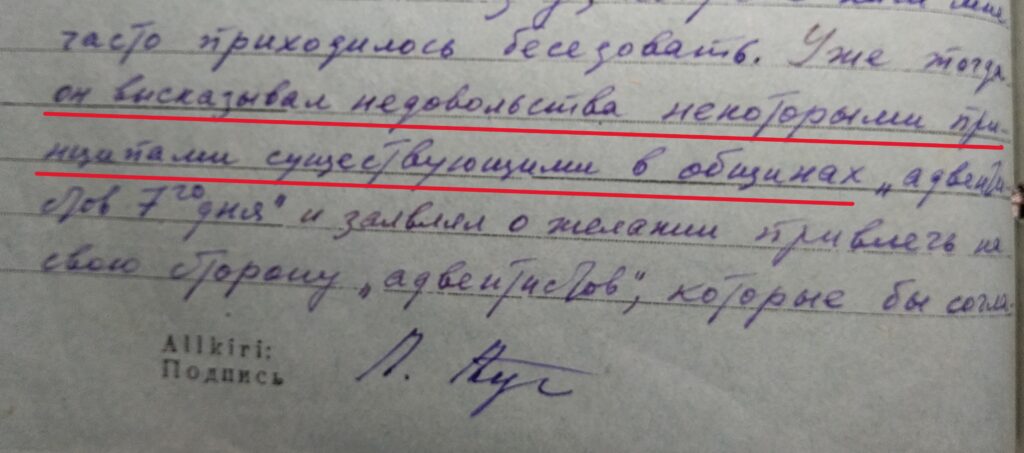 часто приходилось беседовать. Уже тогда
он высказывал недовольства некоторыми при-
нципами существующими в общинах „адвенти-
стов 7го дня" и заявлял о желании привлечь на
свою сторону „адвентистов", которые бы согла-
Allkiri:
Подпись